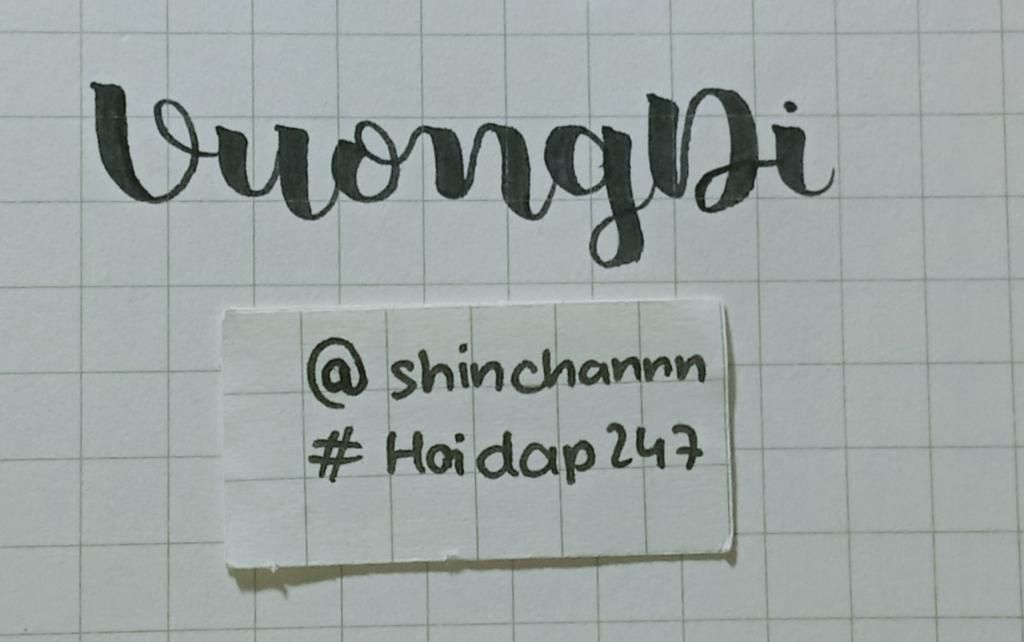 VuongDi
@ shinchannn
# Hoidap247